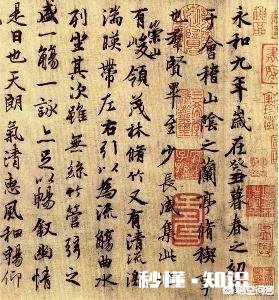 永和九年歲在癸丑暮春之初
于會稽山陰之蘭亭脩稧
也羣賢畢至少長咸集此
有崇山峻領茂林脩竹又有清流激
湍暎帶左右引以為流觴曲水
列坐其次雖無絲竹管弦之
盛一觴一詠上足以暢叙幽情
是日也天朗氣清惠風和暢仰
秒懂·知识
悟空问答